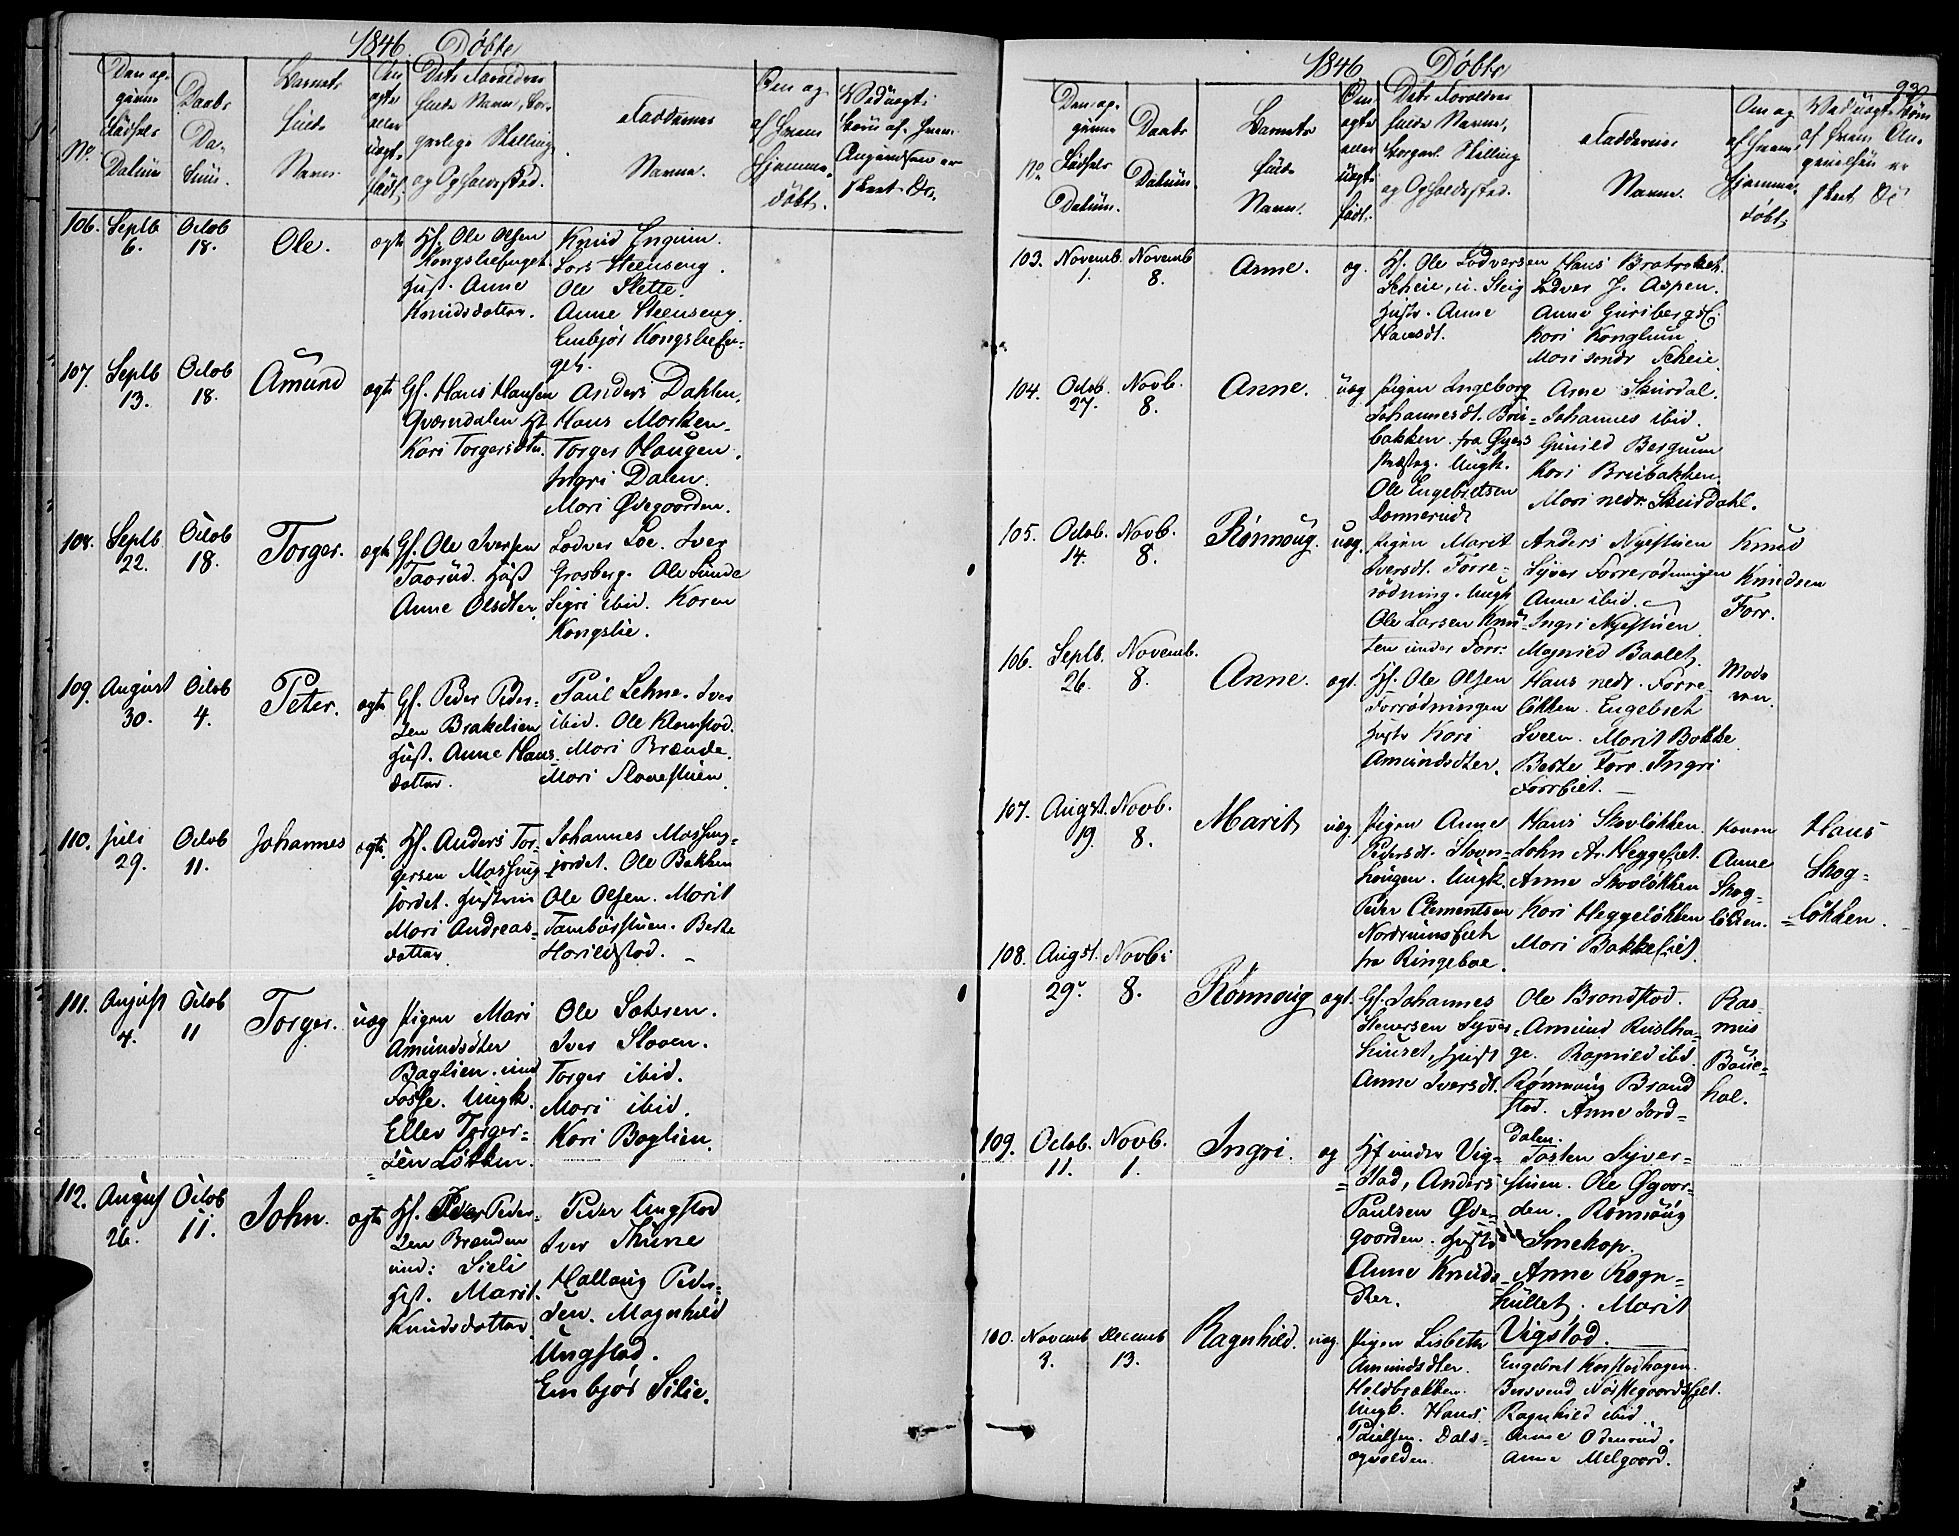 1846. Døbte
No.
Den op-
givne
Fødsels
Datum
Daabs
Da-
tum.
Barnets
fulde
Navn.
Om
ægte
eller
uægte
født.
Dets Forældres
fulde Navn, Bor-
gerlige Stilling
og Opholdssted.
Faddernes
Navne.
Om og
af hvem
Hjemme-
døbt.
106. Septb 6. Octob 18. Ole. ægte
Gf. Ole Olsen
Kongsliefeuget.
Hust. Anne
Knudsdotter.
Knud Enguin.
Lars Steenseng.
Ole Slette.
Anne Steenseng.
Embjør Kongsliefeu-
get.
107. Septb 13. Octob 18. Amund ægte
Gf. Hans Hansen
Qværndalen H.
Kari Torgersdtr.
Anders Dahlen.
Hans Morken.
Torger Haugen.
Ingri Dalen.
Mari Øvegaarden.
108. Septb 22. Octob 18. Torger. ægte
Gf. Ole Iversen
Taarud. Hust
Anne Olsdter.
Lodver Loe. Iver
Grosberg. Ole Lunde
Sigri ibid. Karen
Kongslie.
109. August 30. Octob 4. Peter. ægte
Gf. Peder Peder-
sen Brakelien
Hust. Anne Hans-
dotter.
Paul Lehne. Iver
ibid. Ole Klomstad.
Mari Brænde.
Mari Slaaestuen
110. Juli 29. Octob 11. Johannes ægte
Hf. Anders Tor-
gersen Massing-
jordet. Hustruen
Mari Andreas-
dotter
Johannes Massing-
jordet. Ole Bakken
Ole Olsen. Marit
Tamburstuen. Berte
Harildstad.
111. August 4. Octob 11 Torger. uæg
Pigen Mari
Amundsdter
Baglien. und
Fosse. Ungk.
Ellev Torger-
sen Løkken.
Ole Sateren.
Iver Slaaen.
Torger ibid.
Mari ibid.
Kari Baglien.
112. August 26. Octob 11. John. ægte
Hf. Peder Peder-
sen Brænden
und: Sielie
Hust. Marit
Knudsdotter
Peder Ungstad
Iver Thune
Hallaug Peder-
sen. Magnhild
Ungstad.
Embjør Silie.
1846 Døbte
No.
Den op-
givne
Fødsels
Datum.
Daabs
Datum.
Barnets
fulde
Navn.
Om
ægte
eller
uægte
født.
Dets Forældres
fulde Navn,
borgerl. Stilling
og Opholdssted.
Faddernes
Navne.
Om og
af hvem
hjemme-
døbt.
103. Novemb. 1. Novemb 8. Anne. æg.
Hf. Ole Lodversen
Scheie, u. Steig
Hustr. Anne
Hansdt.
Hans Bratrshet.
Lodver J. Aspen.
Anne Guribergsh.
Kari Konglum.
Mari søndr Scheie.
104. Octob. 27. Novb. 8. Anne. uæg
Pigen Ingeborg
Johannesdt. Brei-
bakken. fra Øyers
Presteg. Ungk.
Ole Engebretsen
Dannerud
Arne Skurdal.
Johannes ibid.
Gunild Bergum
Kari Breibakken.
Mari nedr. Skurdahl.
105. Octob. 14. Novb. 8. Rønnoug. uæg.
Pigen Marit
Iversdt. Forre-
rødning. Ungk
Ole Larsen Knu-
sen under Forr.
Anders Nyestuen
Syver Forrerødningen
Anne ibid.
Ingri Nyestuen
Magnild Baalet.
Knud
Knudsen
Forr.
106. Septb. 26. Novemb. 8. Anne. ægt.
Hf. Ole Olsen
Forrødningen
Hustr Kari
Amundsdter.
Hans nedr. Forre-
løkken. Engebret
Sveen. Marit Bakke
Berte Forr. Ingri
Forrfiet.
Mode
ren.
107. Augst. 19. Novb. 8. Marit uæg
Pigen Anne
Pedersdt. Stovn-
haugen. Ungk.
Peder Clementsen
Nordrumsfieth
fra Ringeboe.
Hans Skovløkken
John Ar. Heggefiet.
Anne Skovløkken
Kari Heggeløkken
Mari Bakkefiet.
Konen
Anne
Skog-
løkken.
Hans
Skog-
løkken.
108. Augst. 29. Novb. 8. Rønnoug ægt.
Gf. Johannes
Stenersen Syver-
huuset, Hust
Anne Iversdt.
Ole Brandstad.
Amund Rustha-
ge. Ragnild ibid
Rønnoug Brand
stad. Anne Jord-
dalen.
Ras-
mus
Baue-
hol.
109. Octob. 11. Novb. 1. Ingri. æg
Hf under Vig-
stad, Anders
Paulsen Øve-
gaarden. Hustr
Anne Knuds-
dter.
Tosten Syver-
stuen. Ole Øgaar-
den. Rønnoug
Smekop.
Anne Rogn-
hullet. Marit
Vigstad.
110. Novemb 3. Decemb 13. Ragnhild. uæg.
Pigen Lisbeth
Amundsdter.
Holsbrækken.
Ungk. Hans
Paulsen. Dals-
ægvolden.
Engebret Korstadhagen.
Bersvend Nørstegaardsfiet.
Ragnhild ibid.
Anne Odenrud.
Anne Melgaard.